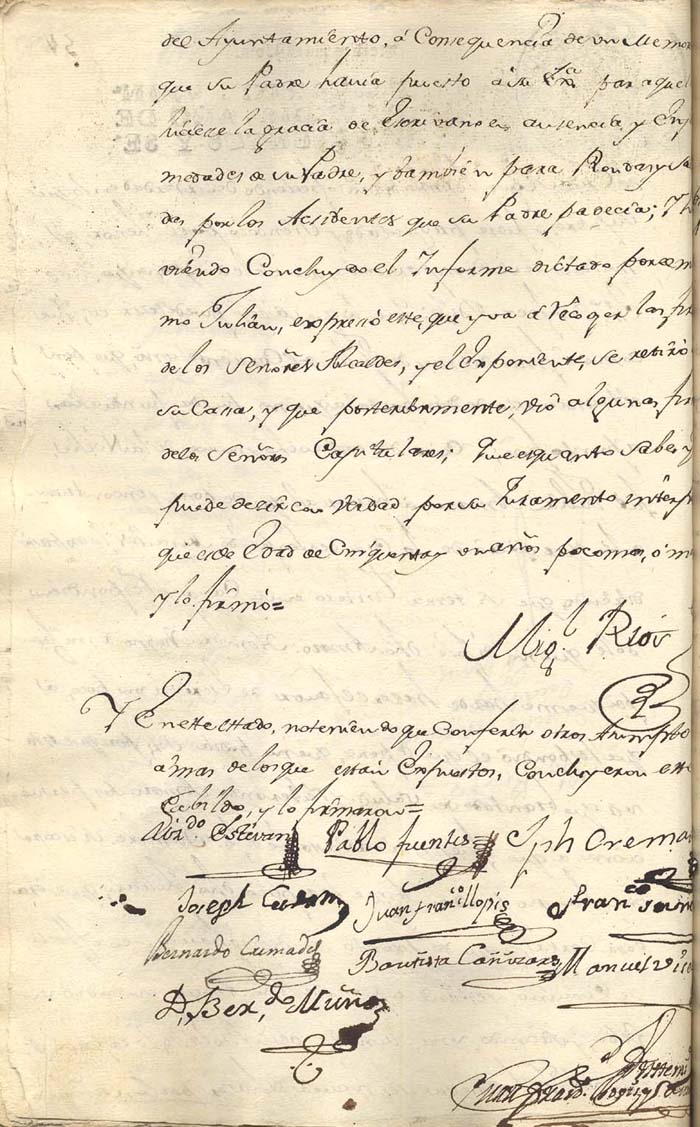 del Ayuntamiento, á Consequencia de un Memor
que su Padre havia puesto á su Exª para que
hiciese la gracia de Escrivano en ausencia, y Enfer
medades de su Padre, y tambien para Rondar y
das por los Accidentes que su Padre padecia; Y ha
viendo Concluydo el Informe dictado por
mo Julian, expresó este, que yva á recoger las fir
de los Señores Alcaldes, y el Exponente, se retiró
su Casa, y que posteriormente, vió algunas fir
de los Señores Capitulares; Que es quanto sabe y
puede decir con verdad por su Juramento
que es de Edad de Cinquenta y un años poco mas, ó m
y lo firmó=
Migl Rios
Y En este estado, no teniendo que Conferir otros
á mas de los que estan Expuestos, Concluyeron este
Cabildo, y lo firmaron=
Estevan Pablo fuentes Jph Crema
Joseph Juan Franco Llopis Franco
Bernardo Cumades Bautista Cañizares Manuel
D, Berdo Muñoz
Juan